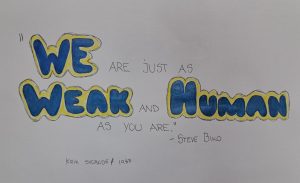 "WE ARE JUST AS
WEAK AND HUMAN
AS YOU ARE."
- STEVE BIKO